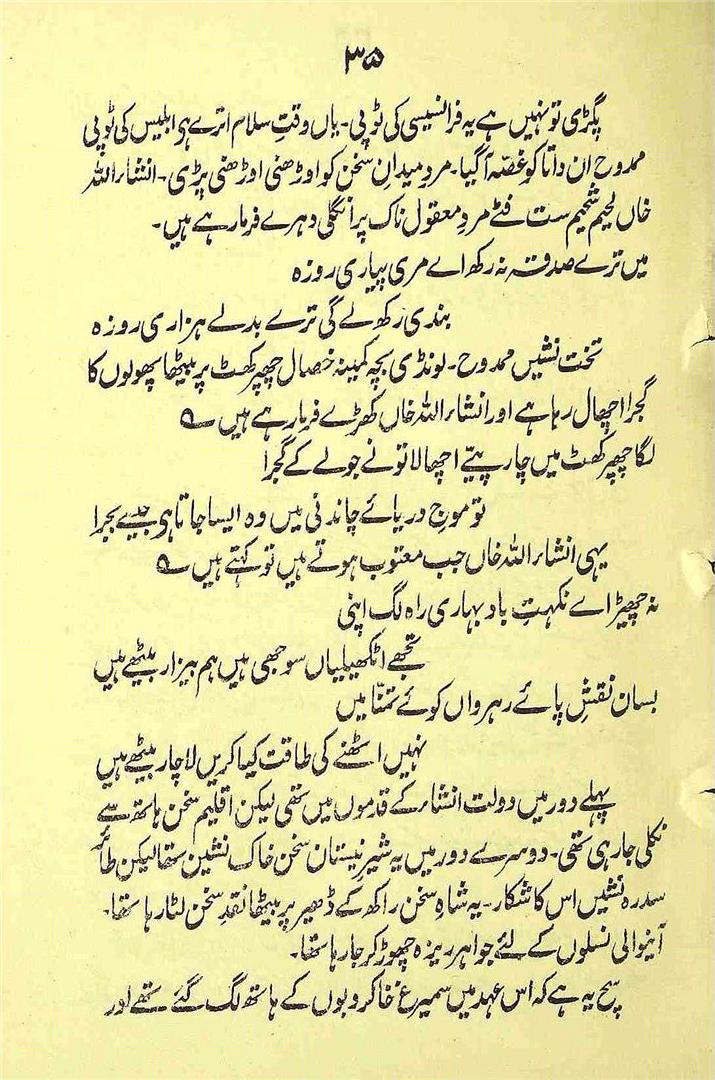 ۳۵
پگڑی تو نہیں ہے یہ فرانسیسی کی ٹوپی۔ یاں وقتِ سلام اترے ہو ابلیس کی ٹوپی
ممدوح ان داتا کو غصّہ آگیا۔ مردِ میدانِ سخن کو اوڑھنی اوڑھنی پڑی۔ انشاء اللہ
خاں لحیم شحیم ست فٹے مردِ معقول ناک پر انگلی دہرے فرما رہے ہیں۔
میں ترے صدقہ نہ رکھ اے مری پیاری روزہ
بندی رکھ لے گی ترے بدلے ہزاری روزہ
تخت نشیں ممدوح۔ لونڈی بچہ کمینہ خصال چھپرکھٹ پر بیٹھا پھولوں کا
گجرا اچھال رہا ہے اور انشاء اللہ خاں کھڑے فرما رہے ہیں ؎
لگا چھپرکھٹ میں چار پہیّے اچھالا تو نے جو لے کے گجرا
تو موج دریائے چاندنی میں وہ ایسا جاتا ہو جیسے بجرا
یہی انشاء اللہ خاں جب معتوب ہوتے ہیں تو کہتے ہیں ؎
نہ چھیڑ اے نکہتِ باد بہاری راہ لگ اپنی
تجھے اٹکھیلیاں سوجھی ہیں ہم بیزار بیٹھے ہیں
بسان نقشِ پائے رہرواں کوئے تمنّا میں
نہیں اٹھنے کی طاقت کیا کریں لاچار بیٹھے ہیں
پہلے دور میں دولت انشاء کے قدموں میں تھی لیکن اقلیم سخن ہاتھ سے
نکلی جا رہی تھی۔ دوسرے دور میں یہ شیر نیستان سخن خاک نشین تھا لیکن طائر
سدرہ نشیں اس کا شکار۔ یہ شاہِ سخن راکھ کے ڈھیر پر بیٹھا نقدِ سخن لٹا رہا تھا۔
آنیوالی نسلوں کے لئے جواہر ریزہ چھوڑ کر جا رہا تھا۔
سچ یہ ہے کہ اس عہد میں سمیرغ خاکروبوں کے ہاتھ لگ گئے تھے اور